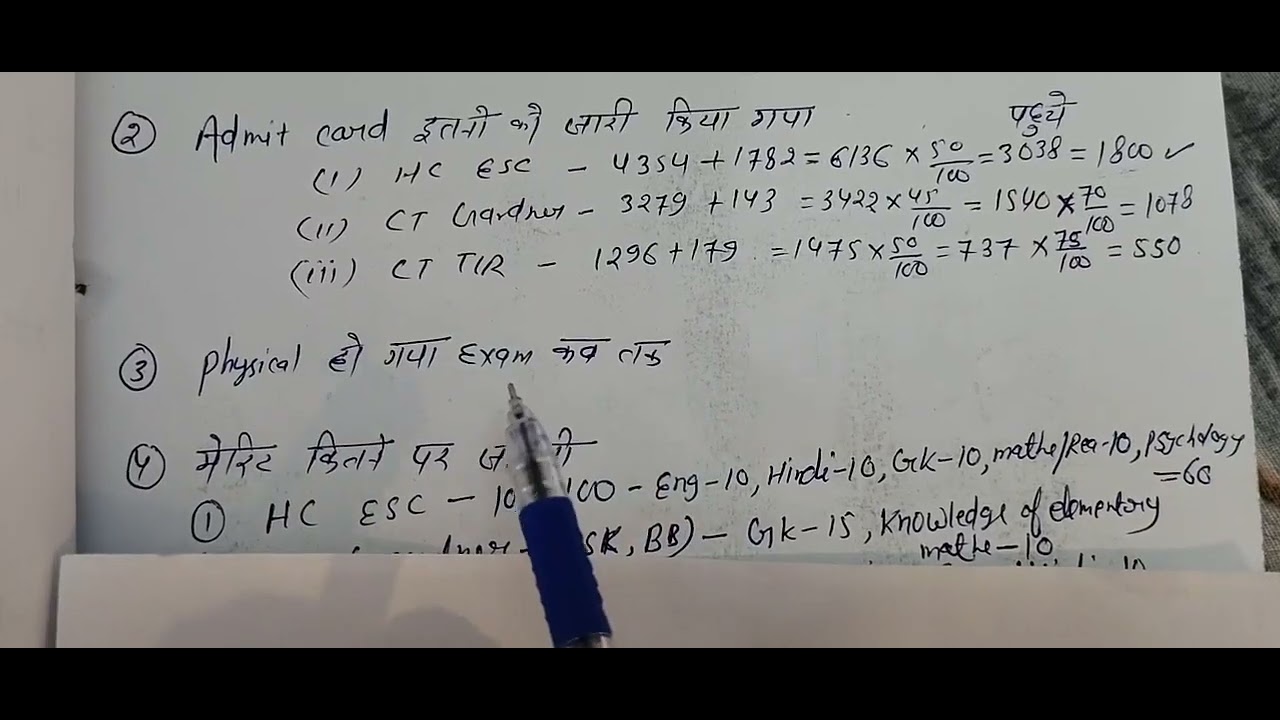 ② Admit card इतनो को जारी किया गया पहुचे
(I) HC ESC - 4354 + 1782 = 6136 × 50/100 = 3038 = 1800 ✓
(II) CT Gardner - 3279 + 143 = 3422 × 45/100 = 1540 × 70/100 = 1078
(iii) CT TIR - 1296 + 179 = 1475 × 50/100 = 737 × 75/100 = 550
③ Physical हो गया Exam कब तक
④ मेरिट कितने पर
① HC ESC - 100 - Eng-10, Hindi-10, GK-10, mathe/Rea-10, Psychology = 60
SK, BB) - GK-15, Knowledge of elementory mathe-10